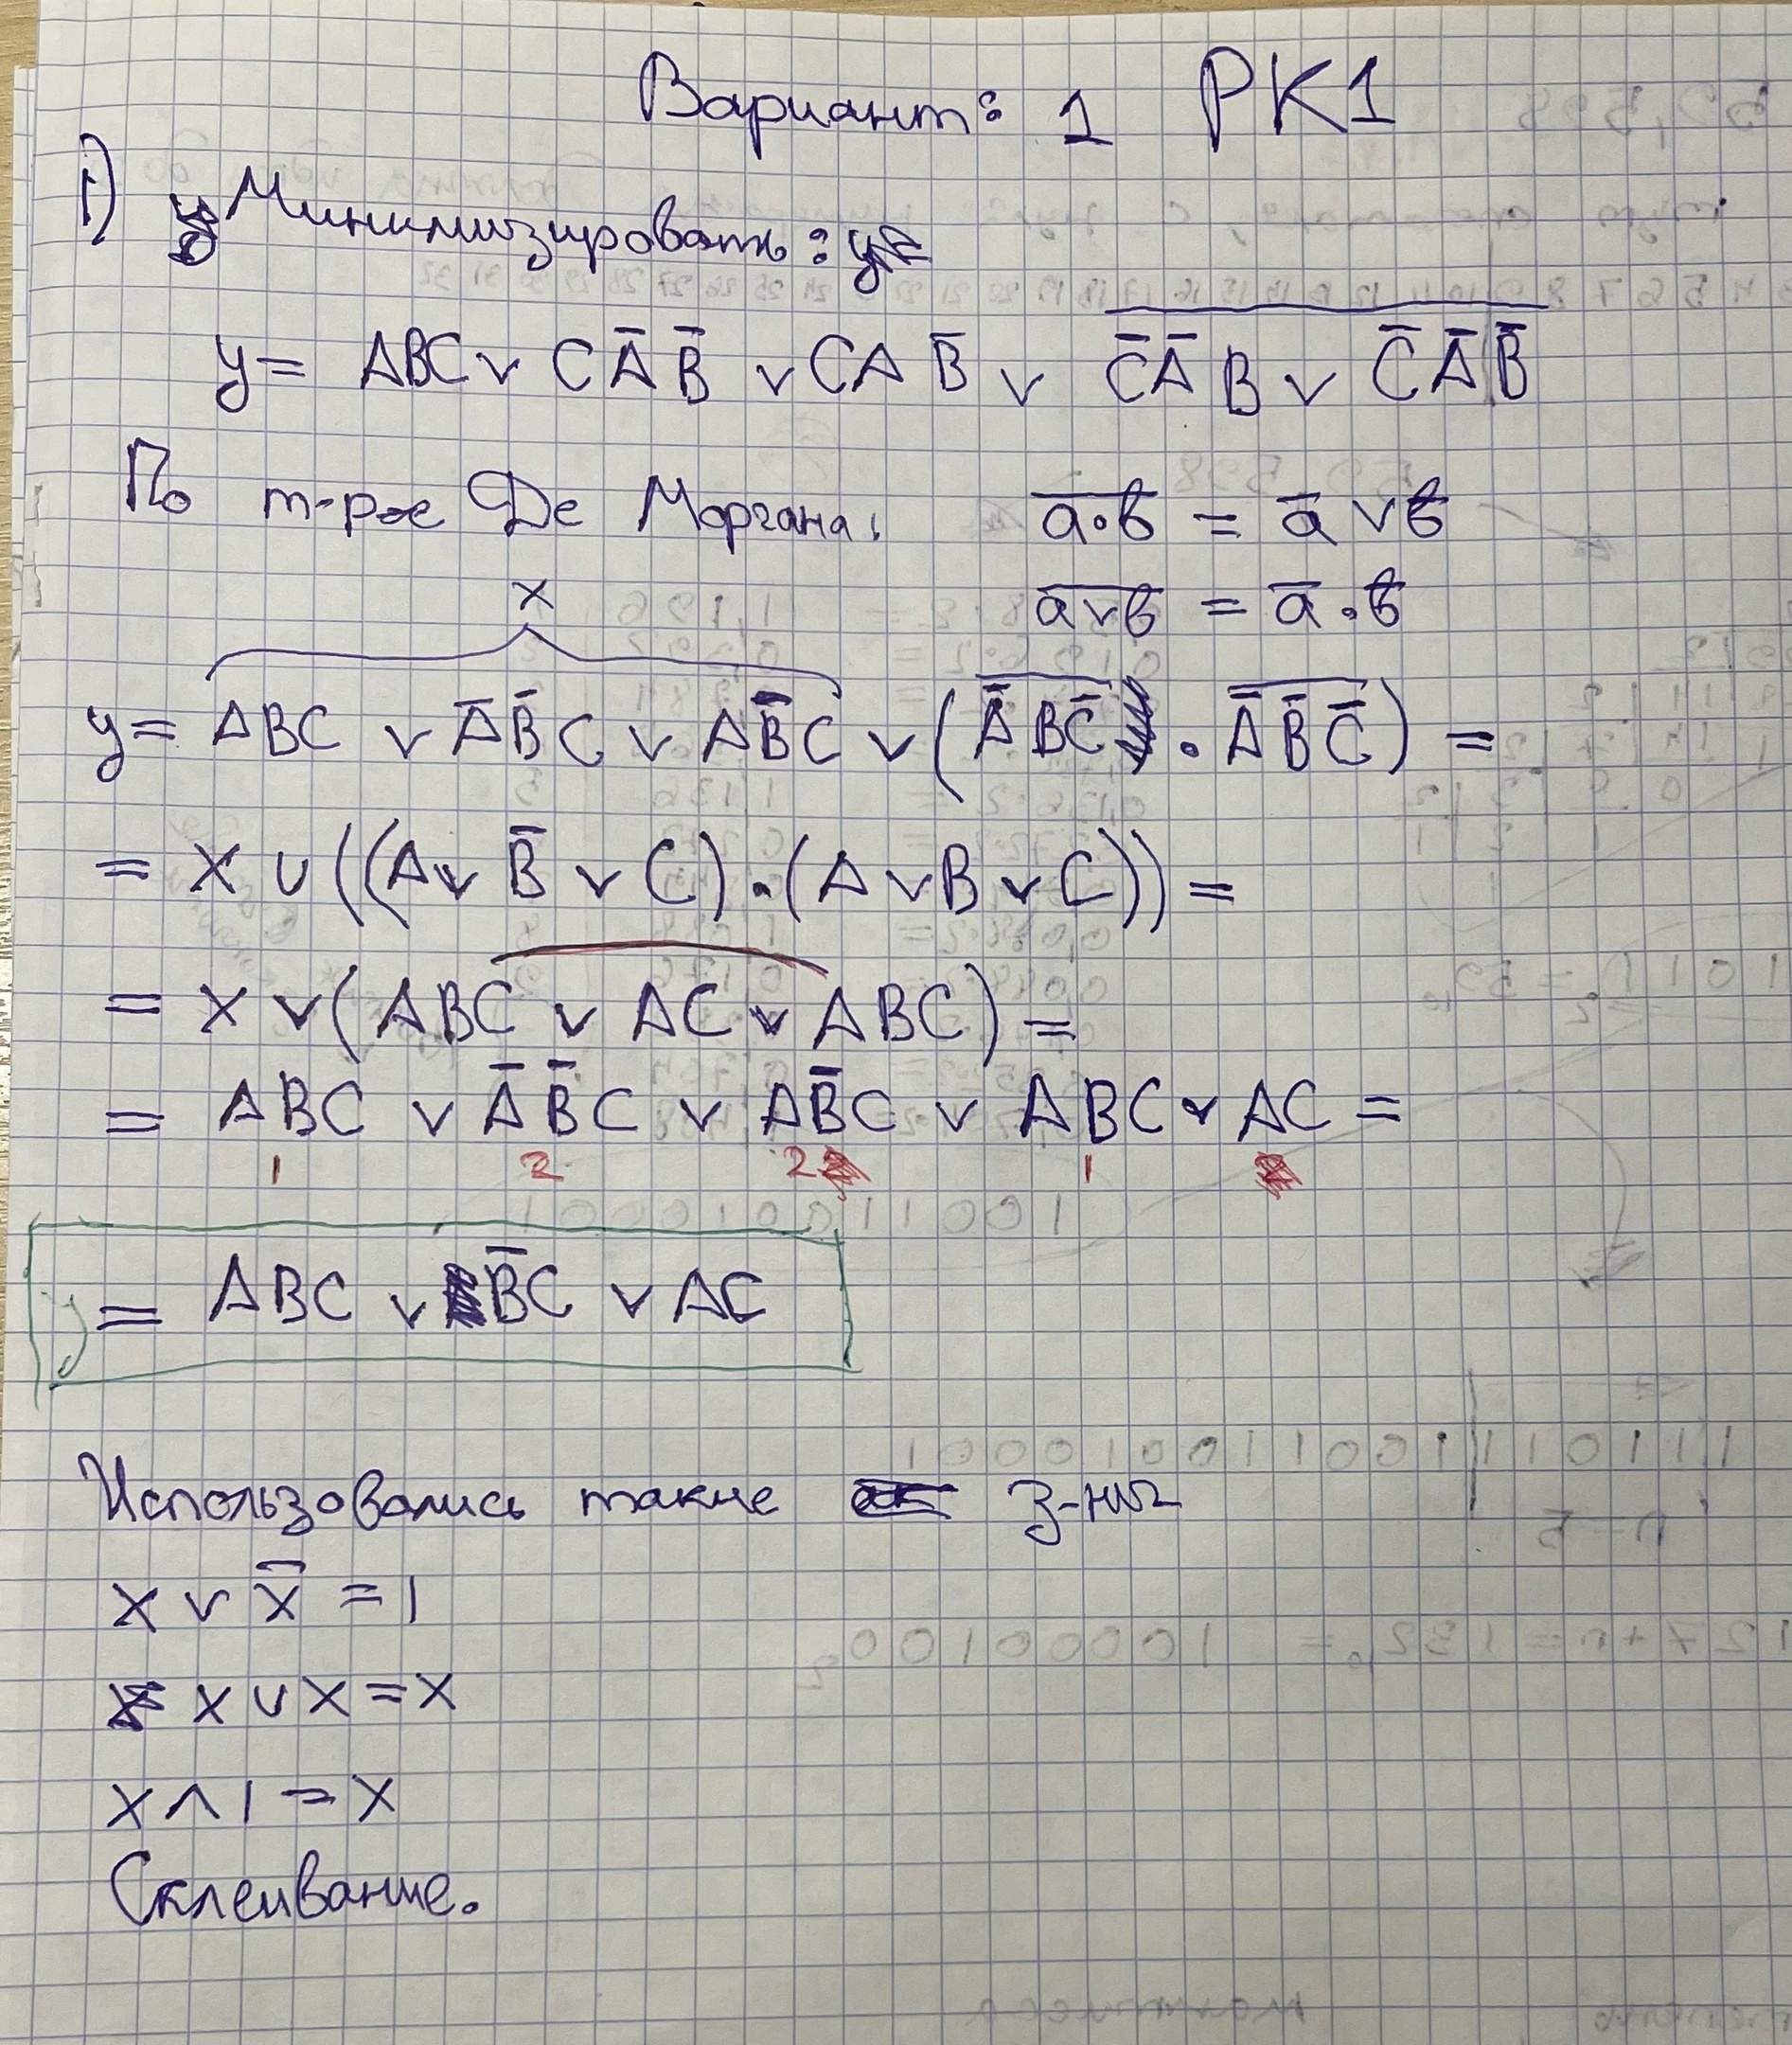 Вариант: 1 РК1
1) Минимизировать:
y = ABC ∨ CA̅B̅ ∨ CAB̅ ∨ \overline{C̅A̅B ∨ C̅A̅B̅}
По т-ре Де Моргана: \overline{a·b} = a̅ ∨ b̅
\overline{a∨b} = a̅ · b̅
x
y = ABC ∨ A̅B̅C ∨ AB̅C ∨ (\overline{A̅BC̅} · \overline{A̅B̅C̅}) =
= X ∪ ((A ∨ B̅ ∨ C)·(A ∨ B ∨ C)) =
= X ∨ (ABC ∨ AC ∨ ABC) =
= ABC ∨ A̅B̅C ∨ AB̅C ∨ ABC ∨ AC =
1 2 2 1
y = ABC ∨ B̅C ∨ AC
Использовались такие з-ны
x ∨ x̅ = 1
x ∪ x = x
x ∧ 1 = x
Склеивание.